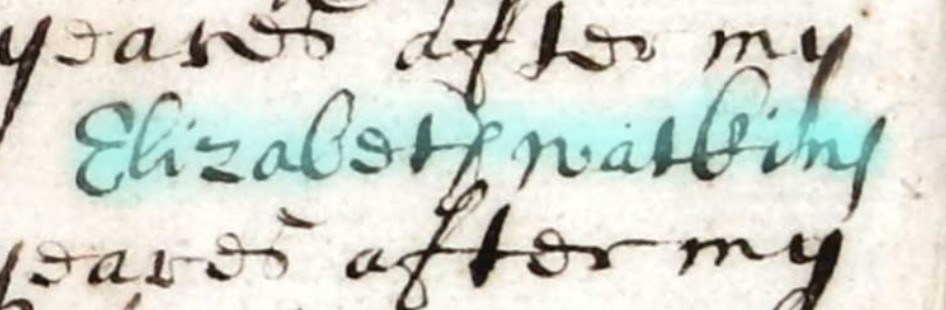 yeares after my
Elizabeth watkins
yeares after my